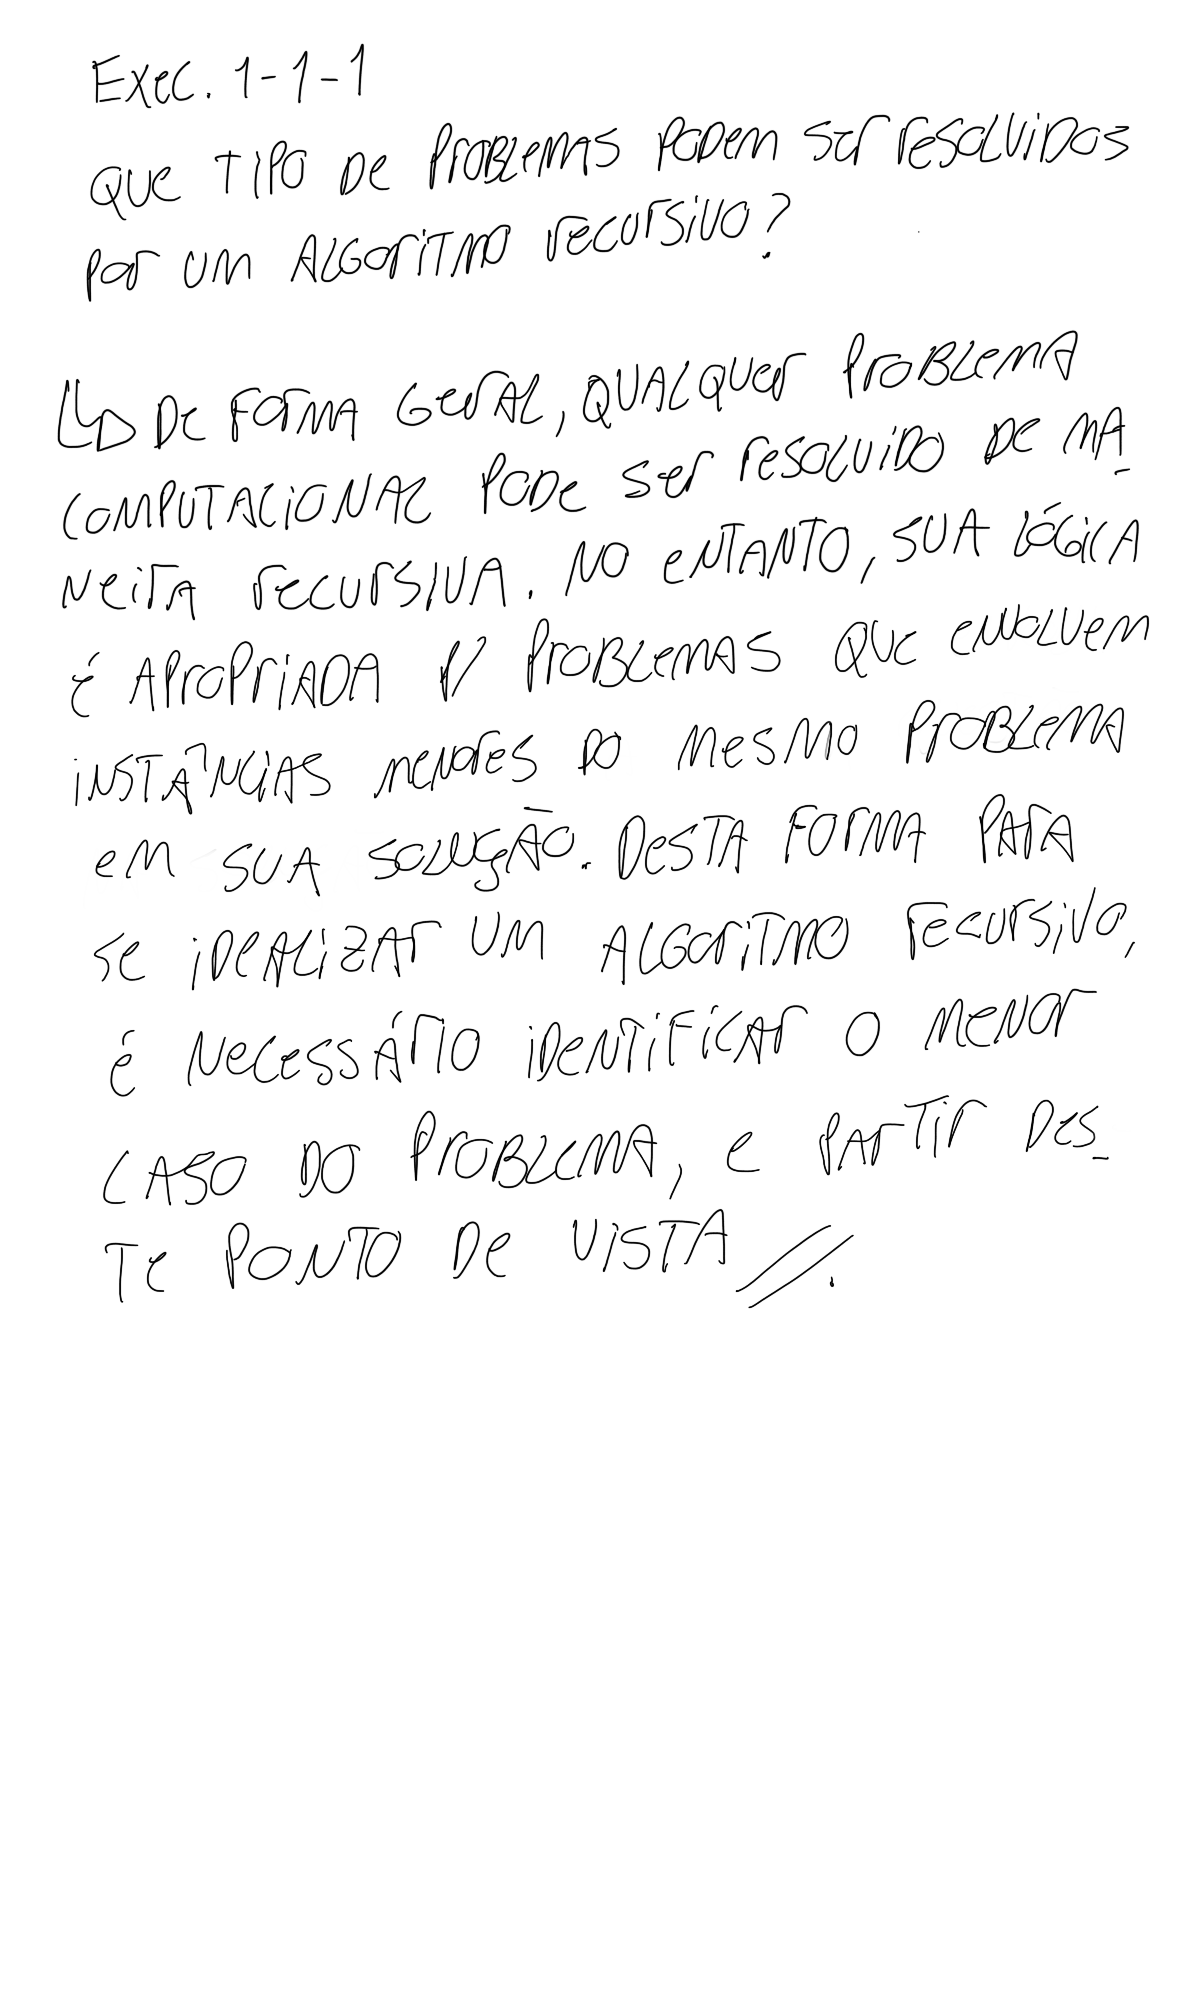 Exec. 1-1-1
QUE TIPO DE PROBLEMAS PODEM SER RESOLVIDOS
POR UM ALGORITMO RECURSIVO?
DE FORMA GERAL, QUALQUER PROBLEMA
COMPUTACIONAL PODE SER RESOLVIDO DE MA-
NEIRA RECURSIVA. NO ENTANTO, SUA LÓGICA
É APROPRIADA P/ PROBLEMAS QUE ENVOLVEM
INSTÂNCIAS MENORES DO MESMO PROBLEMA
EM SUA SOLUÇÃO. DESTA FORMA PARA
SE IDEALIZAR UM ALGORITMO RECURSIVO,
É NECESSÁRIO IDENTIFICAR O MENOR
CASO DO PROBLEMA, E PARTIR DES-
TE PONTO DE VISTA //.